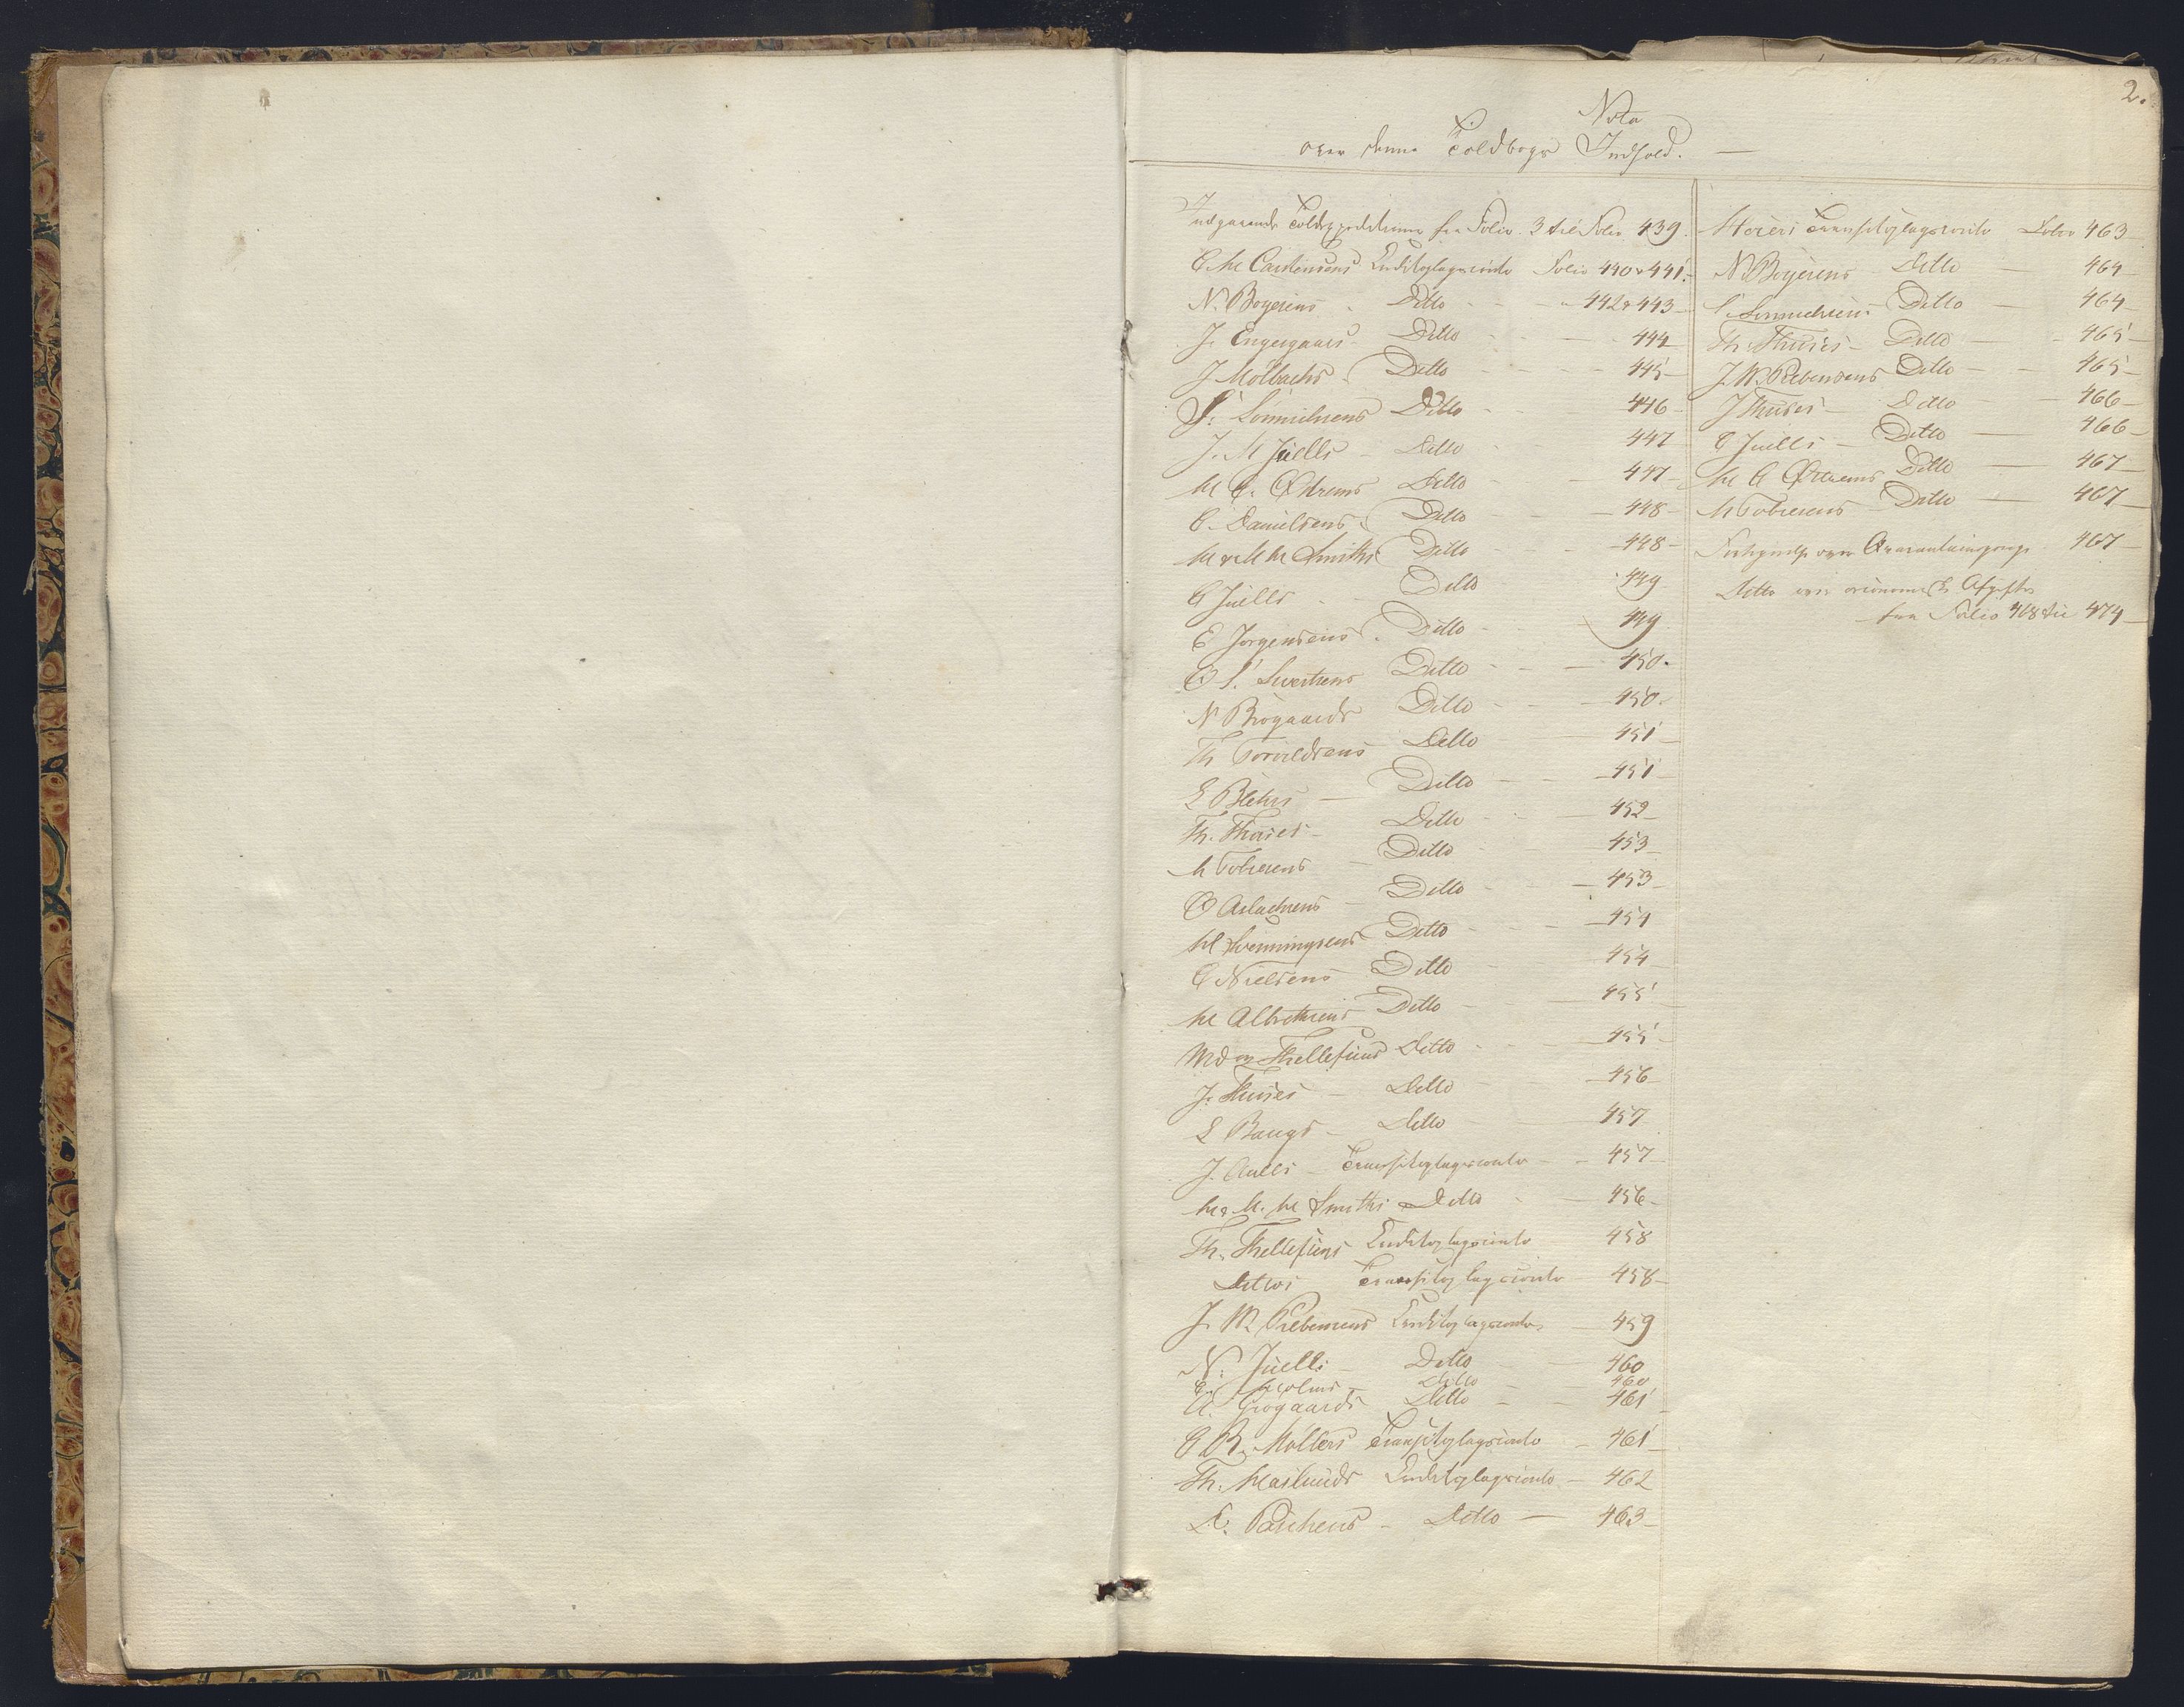 2.
Nota
over denne Toldbogs Indhold.
Indgaaende Toldexpeditioner fra Folio 3 til Folio 439.
C. M. Carstensens Creditoplagsconto Folio 440 & 441.
N. Boyesens Ditto 442 & 443
J. Engergaars Ditto 444
J Möllbachs Ditto 445
S. Sömmichsens Ditto 446
J. M Juells Ditto 447
M C. Ottrems Ditto 447
C. Danielsens Ditto 448
H & M M Smiths Ditto 448
C Juells Ditto 449
E Jörgensens Ditto 449
O S. Sivertsens Ditto 450.
N Brogaards Ditto 450.
Th Torvildsens Ditto 451
E Blehrs Ditto 451
Th. Thrises Ditto 452
M Tobiesens Ditto 453
O Aslachsens Ditto 453
M Svenningsens Ditto 454
C Nielsens Ditto 454
M Albrethsens Ditto 455
Thellefsens Ditto 455
J. Thuses Ditto 456
E Baugs Ditto 457
J. Aalls Transitoplagsconto 457
H & M. M Smiths Ditto 456
Th. Thellefsens Creditoplagsconto 458
Dittos Transitoplagsconto 458
J. W. Prebensens Creditoplagsconto 459
N. Juells Ditto 460
Ditto 460
C. Grögaards Ditto 461
C B. Möllers Transitoplagsconto 461
Th. Haslunds Creditoplagsconto 462
Ditto 463
Transitoplagsconto Folio 463
N Boyesens Ditto 464
S. Sömmichsens Ditto 464
Th. Thuses Ditto 465
J. W. Prebensens Ditto 465
J Thuses Ditto 466
C Juells Ditto 466
M C Ottrems Ditto 467
M Tobiesens Ditto 467
over Quarantainepenge 467
Ditto over Afgifter
fra Folio 468 til 474